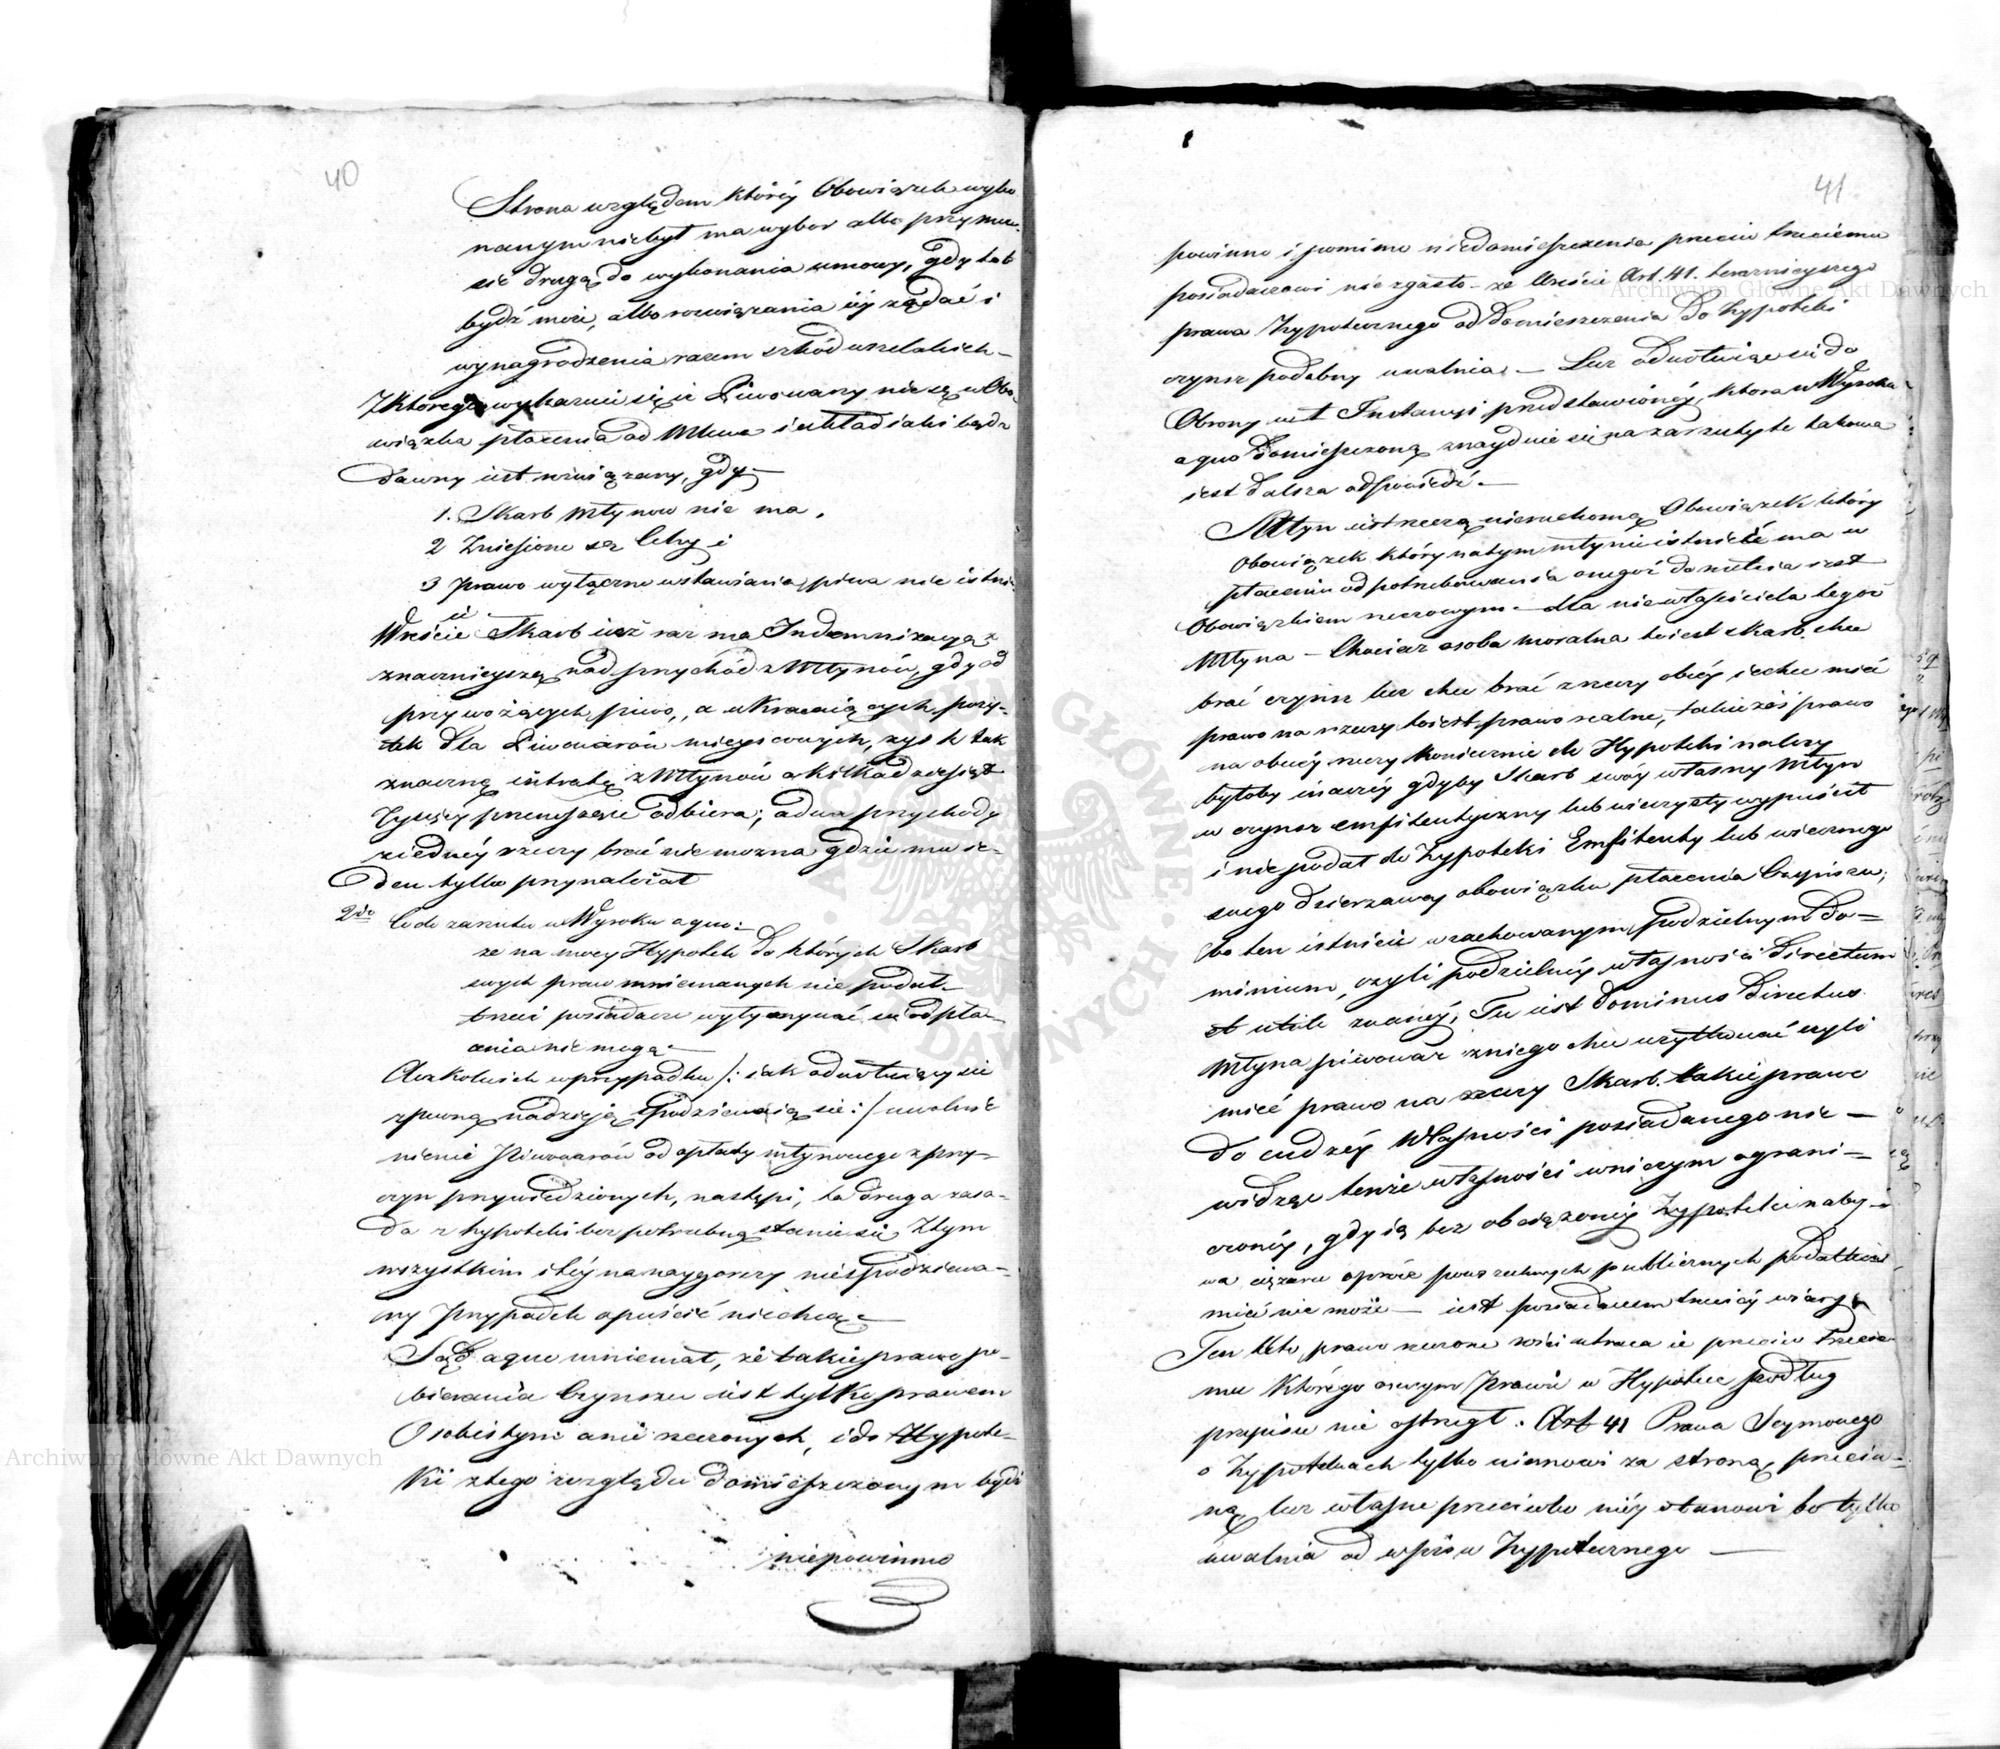 40
Strona względem któréy Obowiązek wyko
nanym niebył ma wybor albo przymu-
sić drugą do wykonania umowy, gdy tak
bydź może, albo rozwiązania iéy żądać i
wynagrodzenia razem szkód wszelakich –
Z którego wykazuie się iż Piwowary nie są w Obo-
wiązku płacenia od Mlewa i układ iaki będz
dawny iest rozwiązany, gdy –
1. Skarb Młynow nie ma,
2 Zniesione są Cechy i
3 Prawo wyłączne wstawiania piwa nie istni-
ie.
Wreście Skarb iuż raz ma Indemnizacyą
znacznieyszą nad przychód z Młynów, gdy od
przywożących piwo, a ukracaiących pozy-
tek dla Piwowarów mieyscowych, zysk tak
znaczną intratę z Młynów o kilkadziesiąt
Tysięcy przenoszące odbiera; a dwa przychody
ziednéy rzeczy brać nie można gdzie mu ie-
den tylko przynależał
2do Co do zarzutu w Wyroku a quo:
że na mocy Hypotek do których Skarb
swych praw mniemanych nie podał –
trzeci posiadacze wytrzymać się od pła-
cenia nie mogą –
Aczkolwiek w przypadku /: iak odwołuiący się
z pewną nadzieją spodziewaią się :/ uwolnie
nienie Piwowarów od opłaty młynowego z przy-
czyn przywiedzionych, nastąpi, ta druga zasa-
da z hypoteki bez potrzebną stanie się Z tym
wszystkim i téy na naygorszy niespodziewa-
ny Przypadek opuścić nie chcą –
Sąd a quo mniemał, że takie prawo po-
bierania Czynszu iest tylko prawem
Osobistym a nie rzeczonych, i do Hypote-
ki z tego względu domieszczonym bydź
niepowinno
41
powinno i pomimo niedomieszczenia przeciw trzeciemu
posiadaczowi nie zgasło – że wreście Art. 41. teraznieyszego
prawa Hypotecznego od domieszczenia do hypoteki
czynsz podobny uwalnia – Lecz odwołuiąc się do
Obrony w I Instancyi przedstawionéy, która w Wyroku
a quo domieszczoną znayduie się na zarzuty te takowa
iest dalsza odpowiedź. –
Młyn iest rzeczą nieruchomą Obowiązek który
Obowiązek który na tym młynie istnieć ma w
płaceniu od potrzebowania onegoż do mełcia iest
Obowiązkiem rzeczowym – dla niewłaściciela tegoż
Młyna – Chociaż osoba moralna to iest skarb. chce
brać czynsz lecz chce brać z rzeczy obcéy i chce mieć
prawo na rzeczy to iest prawo realne, takież zaś prawo
na obcéy rzeczy koniecznie do Hypoteki należy
byłoby inaczéy gdyby Skarb swóy własny Młyn
w czynsz emfiteutyczny lub wieczysty wypuścił
i nie podał do hypoteki Emfiteuty lub wiecznego
swego dzierzawcy obowiązku płacenia Czynszu,
bo ten istnieie w zachowanym podzielnym do-
minium, czyli podzielnéy własności directum
et utile zwanéy; Tu iest dominus directus
Młyna piwowar z niego chce uzytkować czyli
mieć prawo na rzeczy Skarb. takie prawo
do cudzéy Własności posiadanego nie –
widząc tenże własności w niczym ograni-
czonéy, gdy ią bez obciązonéy hypoteki naby-
wa ciężaru oprócz powszechnych publicznych podatków
mieć nie może – iest posiadaczem trzeciéy wiary
Ten kto prawo rzeczone rości utraca ie przeciw trzecie
mu którego o swym Prawie w Hypotece podług
przepisu nie ostrzegł. Art 41 Prawa Seymowego
o hypotekach tylko niemowi za stroną przeciw-
ną lecz własnie przeciwko niéy stanowi bo tylko
uwalnia od wpisu hypotecznego –